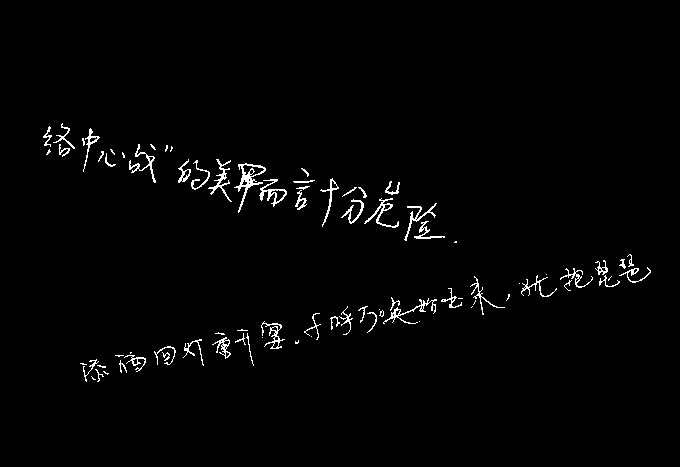 络中心战”的美军而言十分危险.
添酒回灯重开宴.千呼万唤始出来,犹抱琵琶